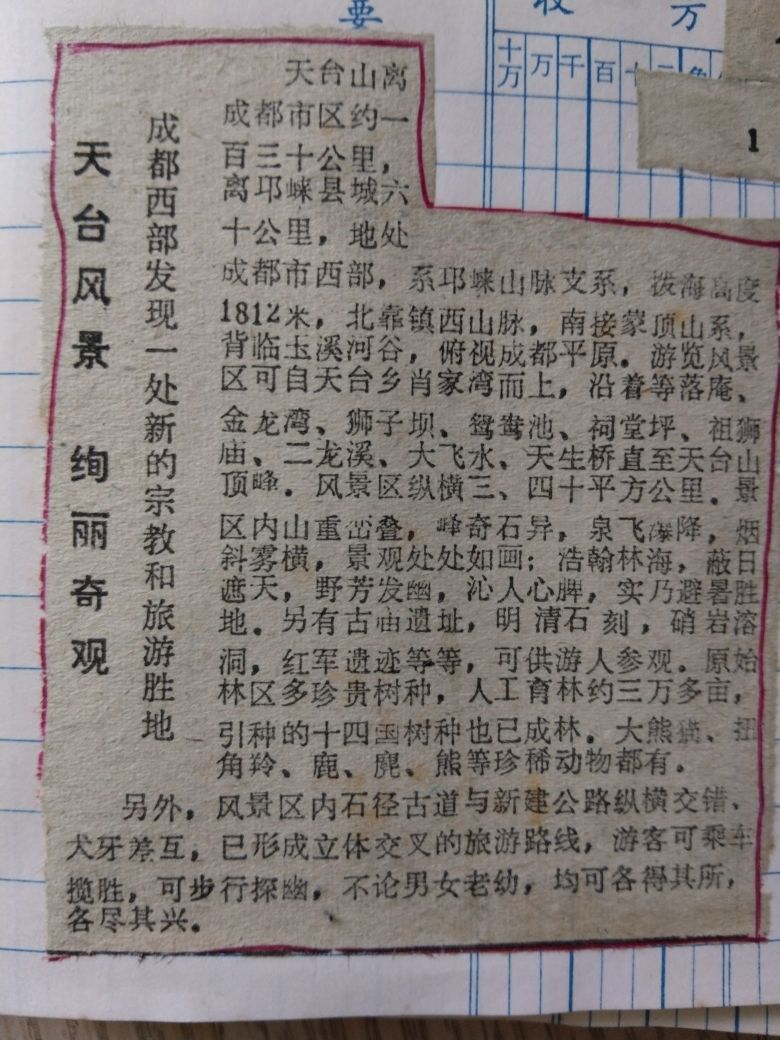 要
收
万
十万 万 千 百 十 元 角
1
成都西部发现一处新的宗教和旅游胜地
天台风景 绚丽奇观
天台山离
成都市区约一
百三十公里，
离邛崃县城六
十公里，地处
成都市西部，系邛崃山脉支系，拨海高度
1812米，北靠镇西山脉，南接蒙顶山系，
背临玉溪河谷，俯视成都平原。游览风景
区可自天台乡肖家湾而上，沿着等落庵、
金龙湾、狮子坝、鸳鸯池、祠堂坪、祖狮
庙、二龙溪、大飞水、天生桥直至天台山
顶峰。风景区纵横三、四十平方公里。景
区内山重峦叠，峰奇石异，泉飞瀑降，烟
斜雾横，景观处处如画；浩翰林海，蔽日
遮天，野芳发幽，沁人心脾，实乃避暑胜
地。另有古庙遗址，明清石刻，硝岩溶
洞，红军遗迹等等，可供游人参观。原始
林区多珍贵树种，人工育林约三万多亩，
引种的十四国树种也已成林。大熊猫、扭
角羚、鹿、麂、熊等珍稀动物都有。
另外，风景区内石径古道与新建公路纵横交错、
犬牙差互，已形成立体交叉的旅游路线，游客可乘车
揽胜，可步行探幽，不论男女老幼，均可各得其所，
各尽其兴。